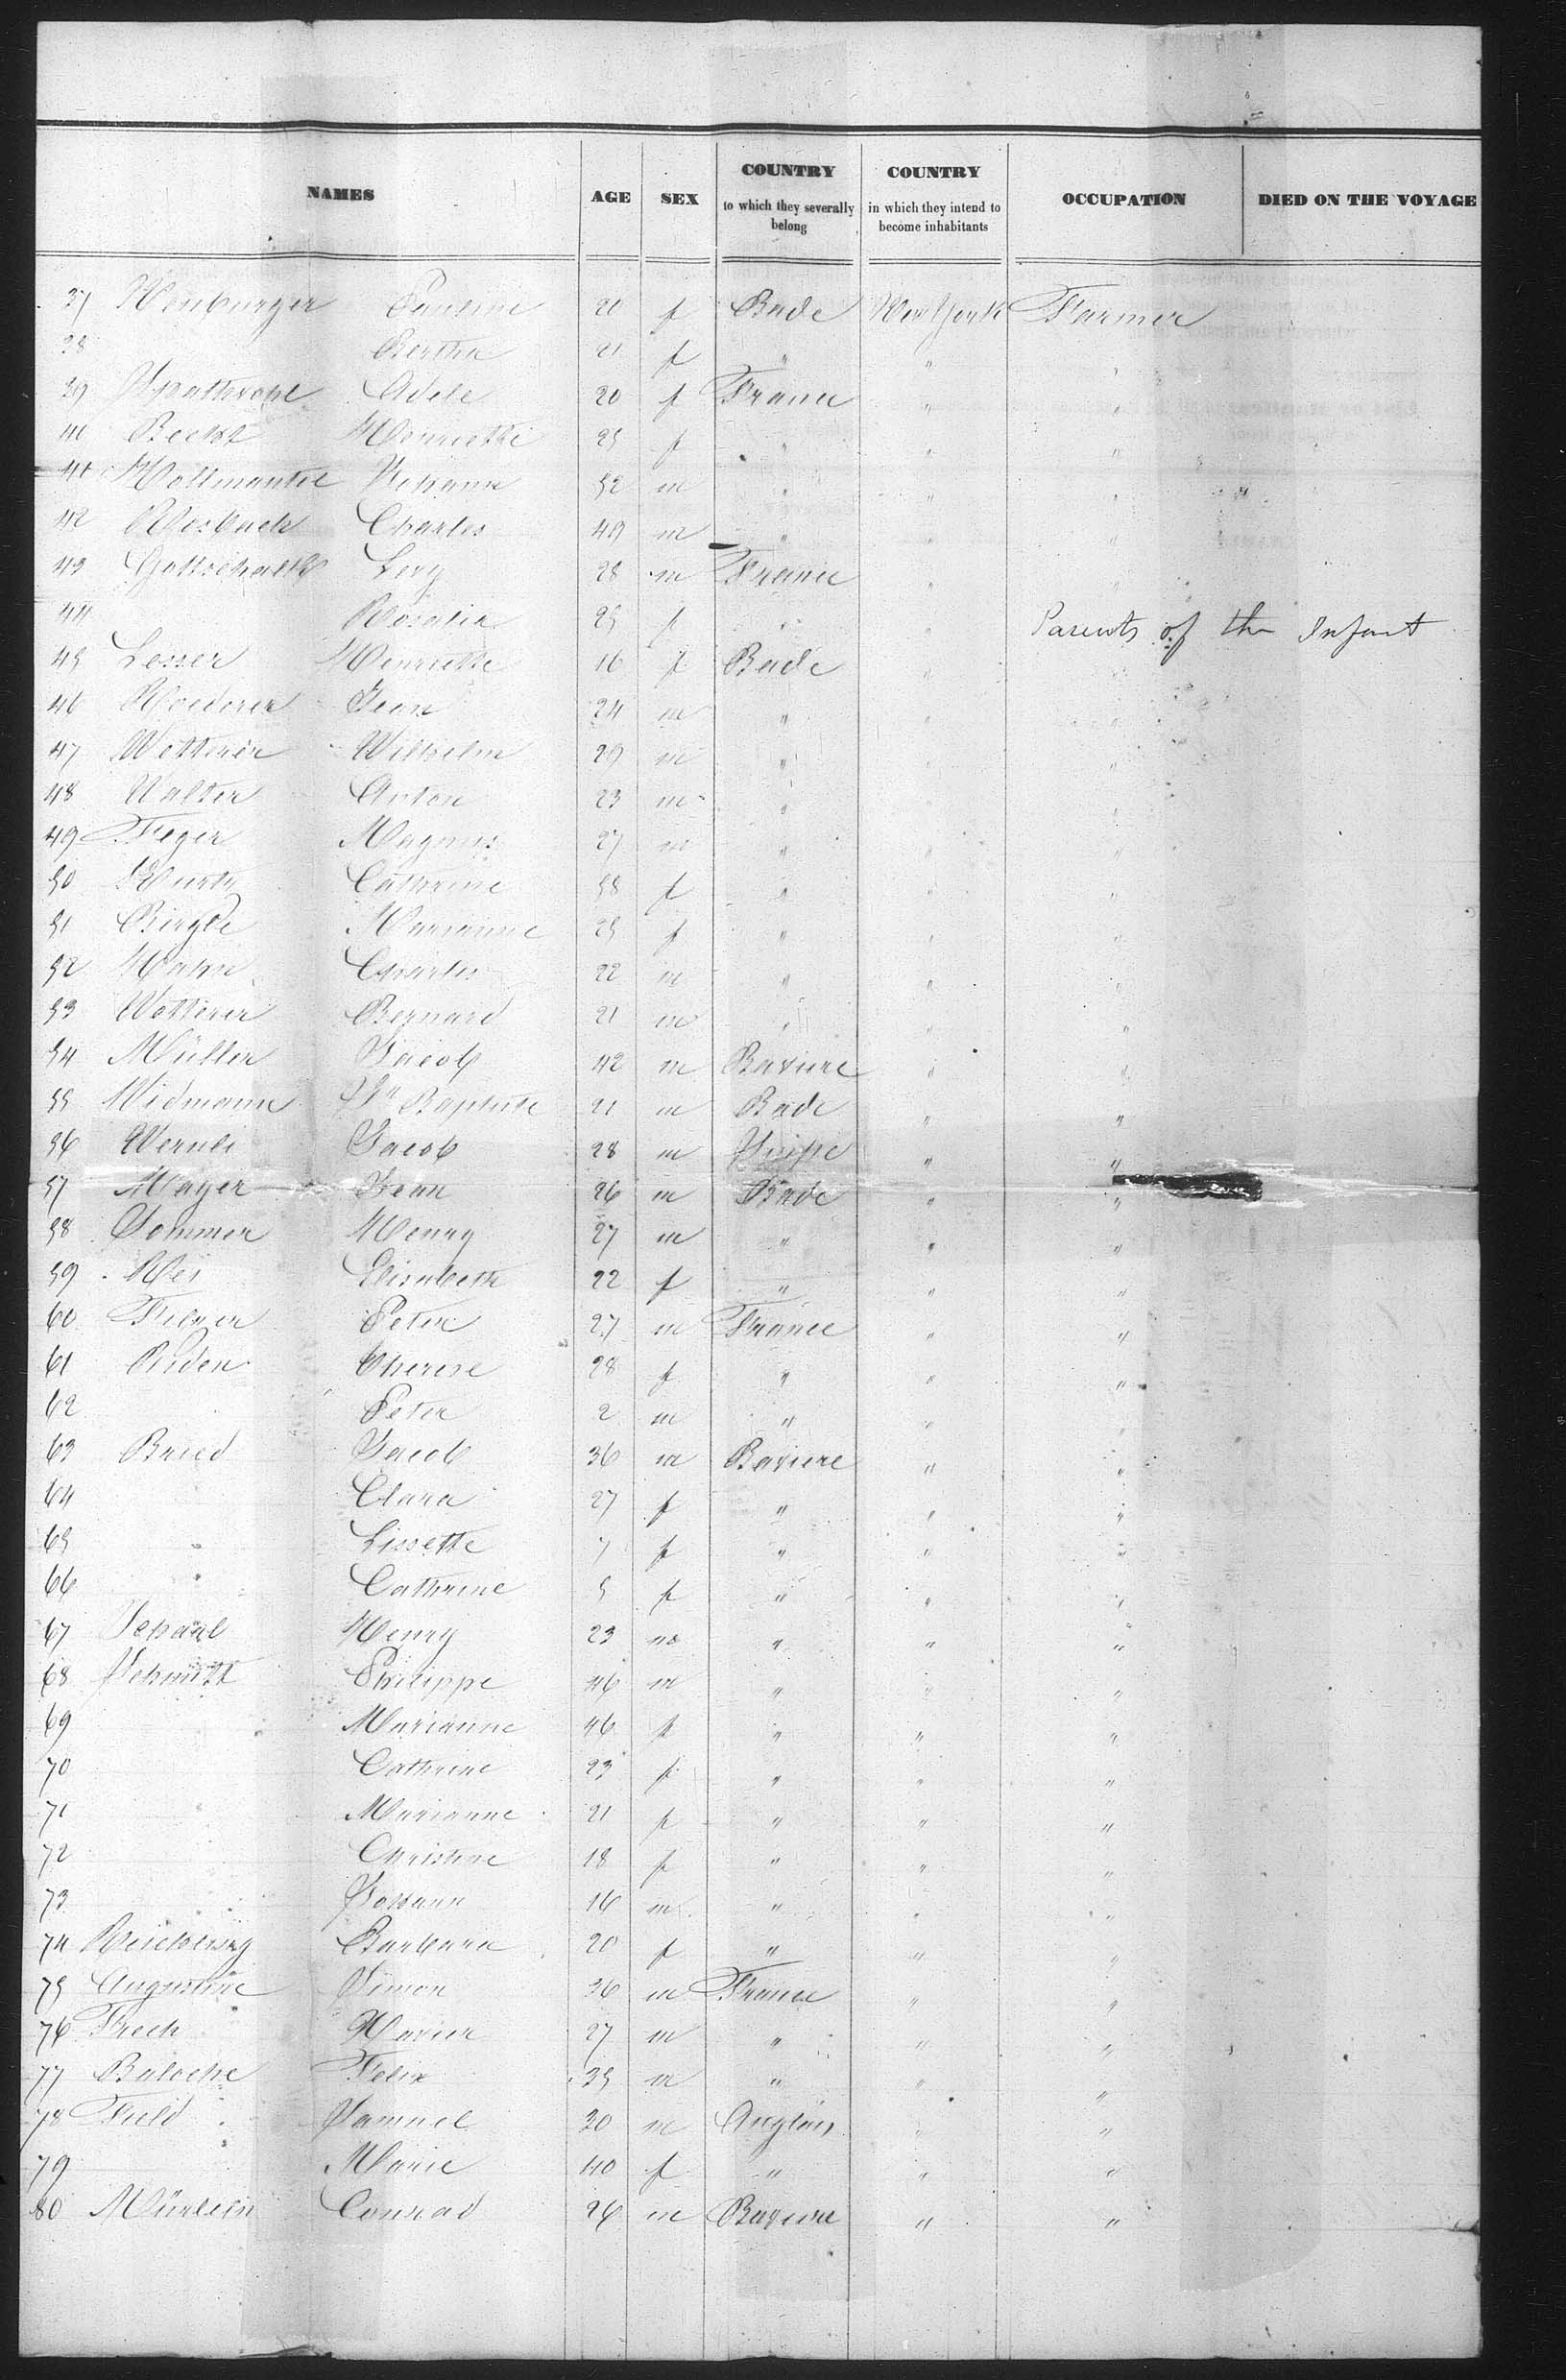 NAMES AGE SEX COUNTRY to which they severally belong COUNTRY in which they intend to become inhabitants OCCUPATION DIED ON THE VOYAGE
37 Pauline 20 f Bade New York Farmer
38 Bertha 21 f " " "
39 Adele 20 f France " "
40 Henriette 25 f " " "
41 52 m " " "
42 Charles 49 m " " "
43 Gottschalk Levy 28 m France " "
44 Rosalia 25 f " " Parents of the Infant
45 Lesser Henriette 16 f Bade " "
46 Roederer Jean 24 m " " "
47 Wetterer Wilhelm 29 m " " "
48 Walter Anton 23 m " " "
49 Feger Magnus 27 m " " "
50 Cathrine 58 f " " "
51 Marianne 25 f " " "
52 Hahn Charles 22 m " " "
53 Wetterer Bernard 21 m " " "
54 Müller Jacob 42 m Baviere " "
55 Widmann Jn Baptiste 21 m Bade " "
56 Wernli Jacob 28 m Suisse " "
57 Mayer Jean 26 m Bade " "
58 Sommer Henry 27 m " " "
59 Elisabeth 22 f " " "
60 Peter 27 m France " "
61 Therese 28 f " " "
62 Peter 2 m " " "
63 Bried Jacob 36 m Baviere " "
64 Clara 27 f " " "
65 Lissette 7 f " " "
66 Cathrine 5 f " " "
67 Schaal Henry 23 m " " "
68 Schmitt Philippe 46 m " " "
69 Marianne 46 f " " "
70 Cathrine 23 f " " "
71 Marianne 21 f " " "
72 Christine 18 f " " "
73 Johann 16 m " " "
74 Barbara 20 f " " "
75 Augustine Simon 36 m France " "
76 Frech Xavier 27 m " " "
77 Baloche Felix 35 m " " "
78 Field Samuel 30 m Anglais " "
79 Marie 40 f " " "
80 Conrad 26 m Baviere " "